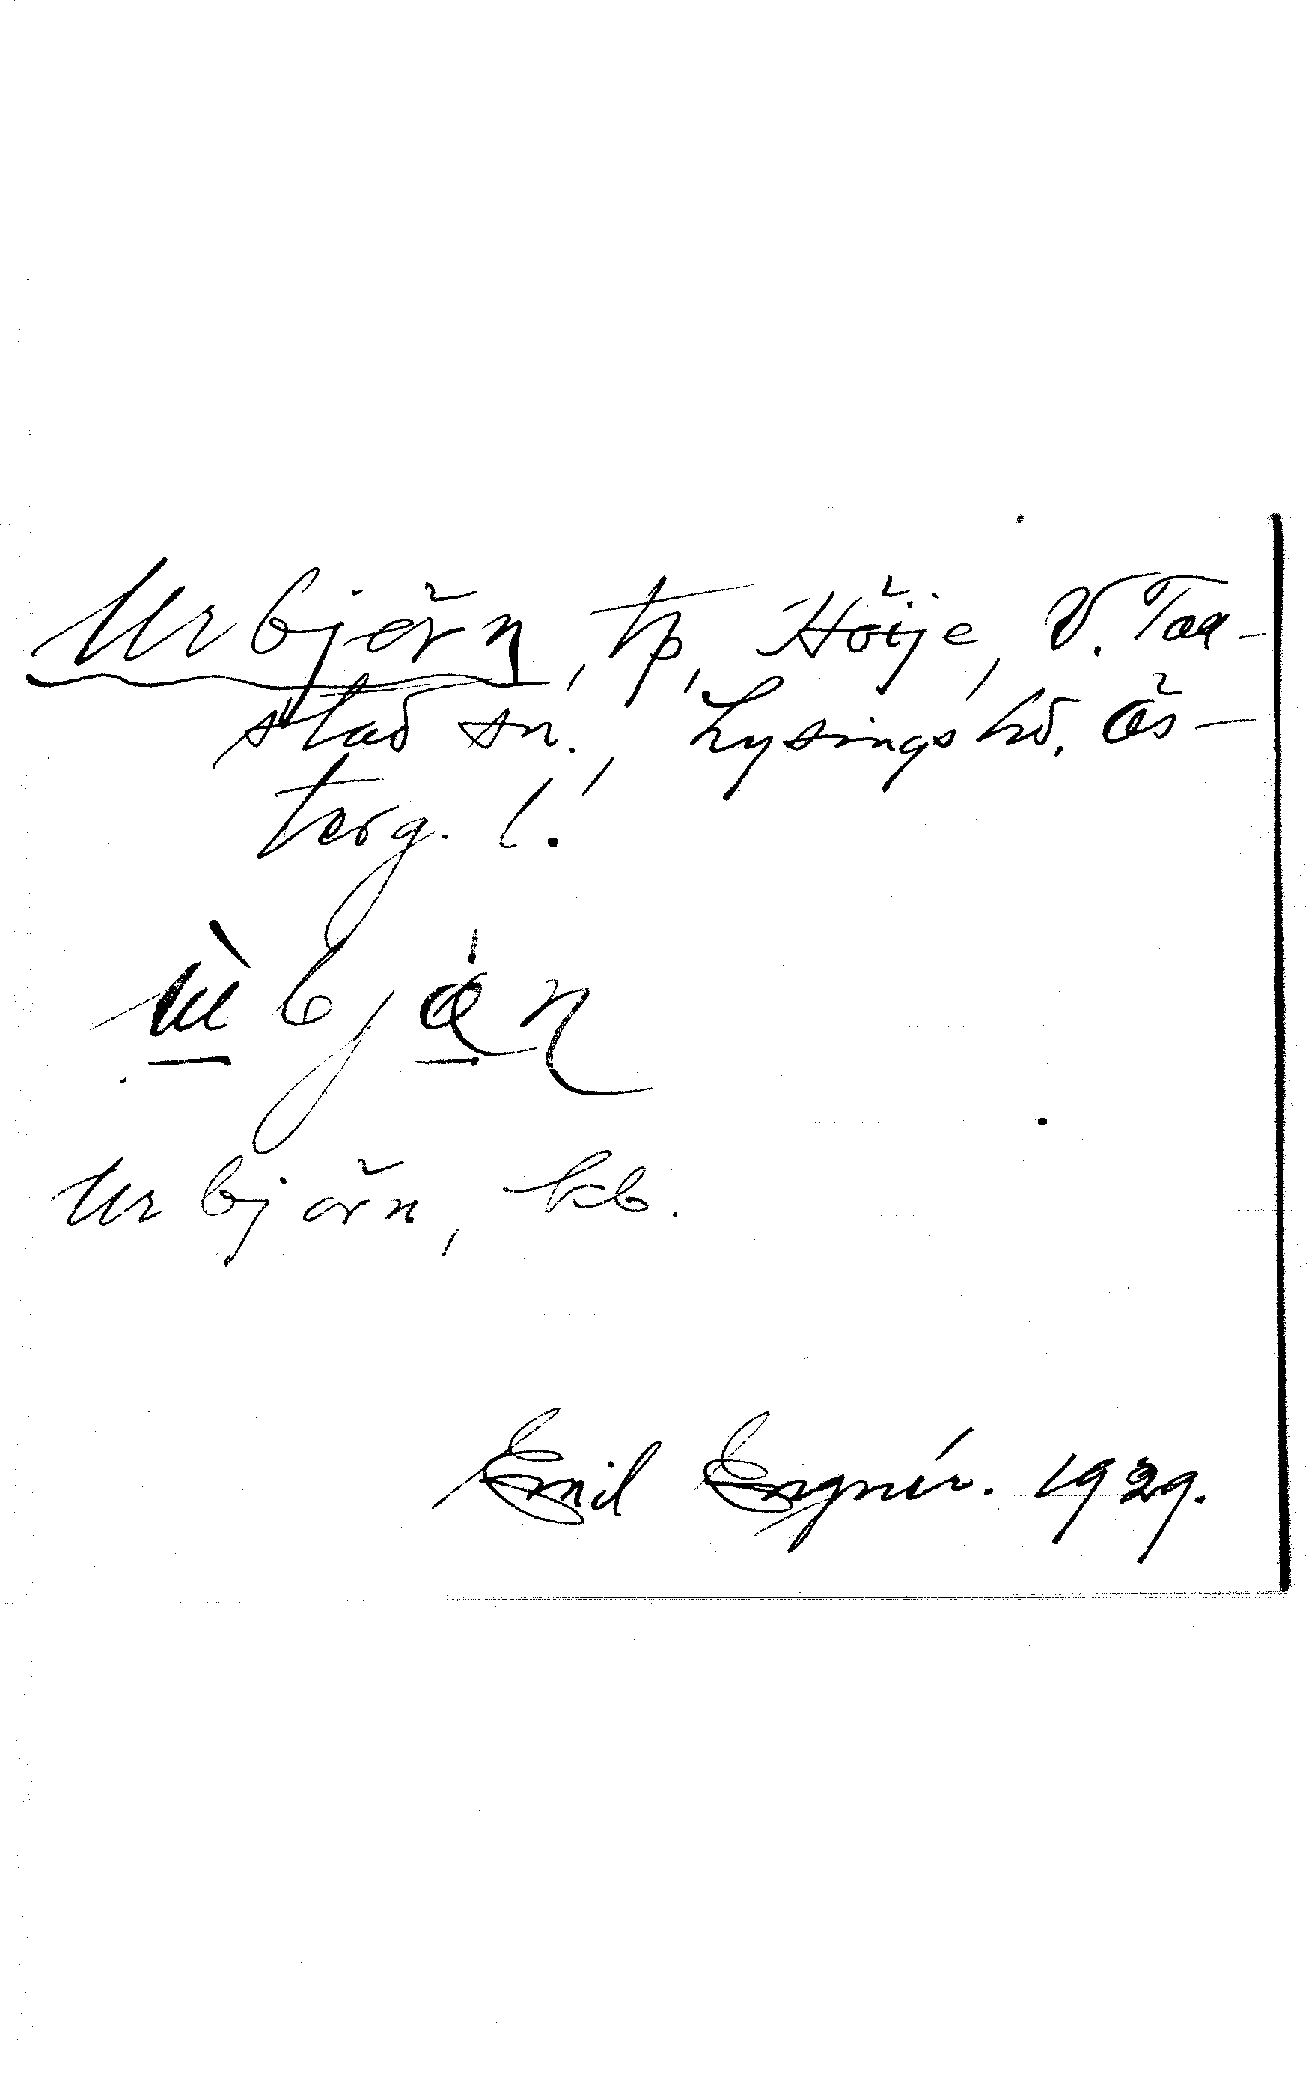 Urbjörn, tp, Höije, V. Toll-
stad sn., Lysings hd. Ös-
terg. l.
ùbjǿn
Urbjörn, kb.
Emil Engnér. 1929.